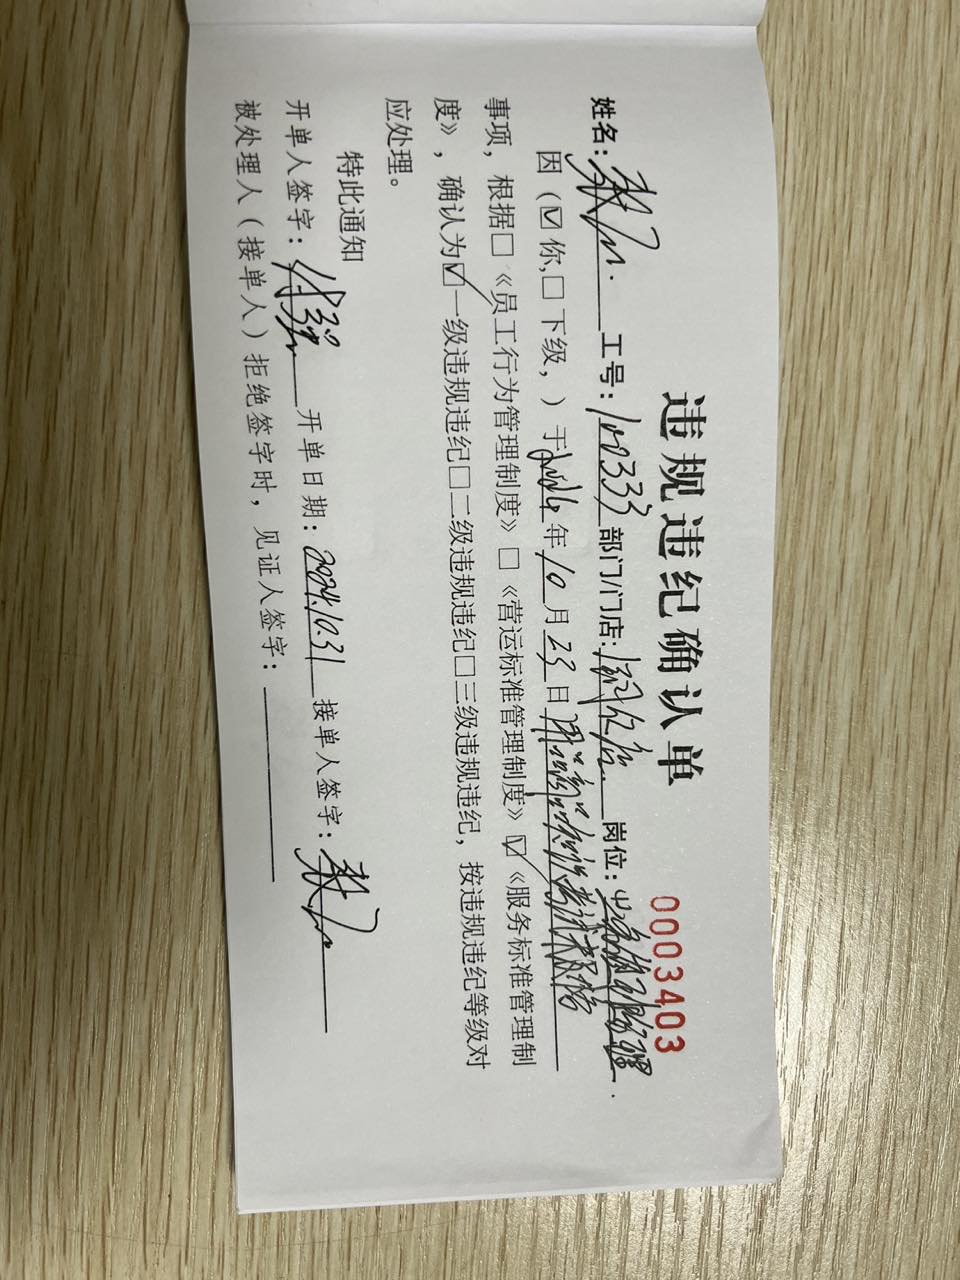 违规违纪确认单
0003403
姓名： 工号：100333 部门/门店： 岗位：
因（☑你,☐下级，）于2024年10月23日
事项，根据☐《员工行为管理制度》☐《营运标准管理制度》☑《服务标准管理制
度》，确认为☑一级违规违纪☐二级违规违纪☐三级违规违纪，按违规违纪等级对
应处理。
特此通知
开单人签字： 开单日期：2024.10.31 接单人签字：
被处理人（接单人）拒绝签字时，见证人签字：